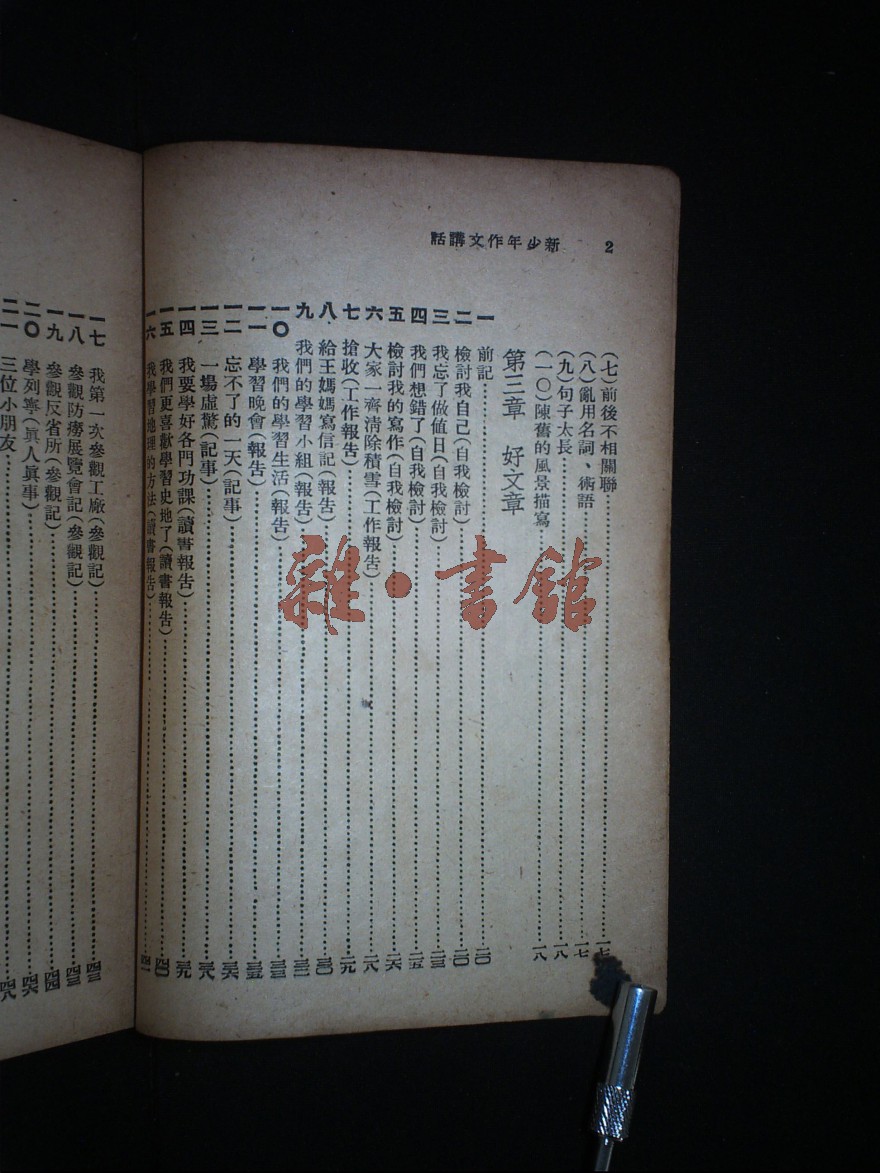 2 新少年作文講話
(七)前後不相關聯……一七
(八)亂用名詞、術語……一七
(九)句子太長……一八
(一〇)陳舊的風景描寫……一八
第三章 好文章
一 前記……二〇
二 檢討我自己(自我檢討)……二〇
三 我忘了做值日(自我檢討)……二三
四 我們想錯了(自我檢討)……二五
五 檢討我的寫作(自我檢討)……二六
六 大家一齊清除積雪(工作報告)……二八
七 搶收(工作報告)……二九
八 給王媽媽寫信記(報告)……三〇
九 我們的學習小組(報告)……三二
一〇 我們的學習生活(報告)……三三
一一 學習晚會(報告)……三五
一二 忘不了的一天(記事)……三六
一三 一場虛驚(記事)……三八
一四 我要學好各門功課(讀書報告)……三九
一五 我們更喜歡學習史地了(讀書報告)……四〇
一六 我學習地理的方法(讀書報告)……
一七 我第一次參觀工廠(參觀記)……四三
一八 參觀防癆展覽會記(參觀記)……四三
一九 參觀反省所(參觀記)……四四
二〇 學列寧(眞人眞事)……四六
二一 三位小朋友……四八
雜·書館